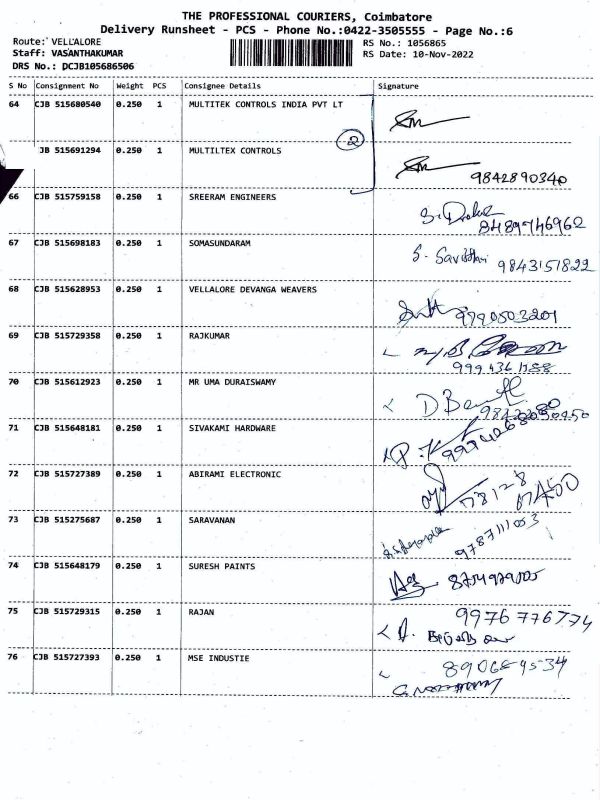 THE PROFESSIONAL COURIERS, Coimbatore
Delivery Runsheet - PCS - Phone No.:0422-3505555 - Page No.:6
Route: VELLALORE
RS No.: 1056865
Staff: VASANTHAKUMAR
RS Date: 10-Nov-2022
DRS No.: DCJB105686506
S No Consignment No Weight PCS Consignee Details Signature
64 CJB 515680540 0.250 1 MULTITEK CONTROLS INDIA PVT LT
2
JB 515691294 0.250 1 MULTILTEX CONTROLS
9842890340
66 CJB 515759158 0.250 1 SREERAM ENGINEERS
8489746962
67 CJB 515698183 0.250 1 SOMASUNDARAM
S. Savithri 9843151822
68 CJB 515628953 0.250 1 VELLALORE DEVANGA WEAVERS
9790503201
69 CJB 515729358 0.250 1 RAJKUMAR
70 CJB 515612923 0.250 1 MR UMA DURAISWAMY
71 CJB 515648181 0.250 1 SIVAKAMI HARDWARE
72 CJB 515727389 0.250 1 ABIRAMI ELECTRONIC
73 CJB 515275687 0.250 1 SARAVANAN
9787111053
74 CJB 515648179 0.250 1 SURESH PAINTS
75 CJB 515729315 0.250 1 RAJAN
9976776774
76 CJB 515727393 0.250 1 MSE INDUSTIE